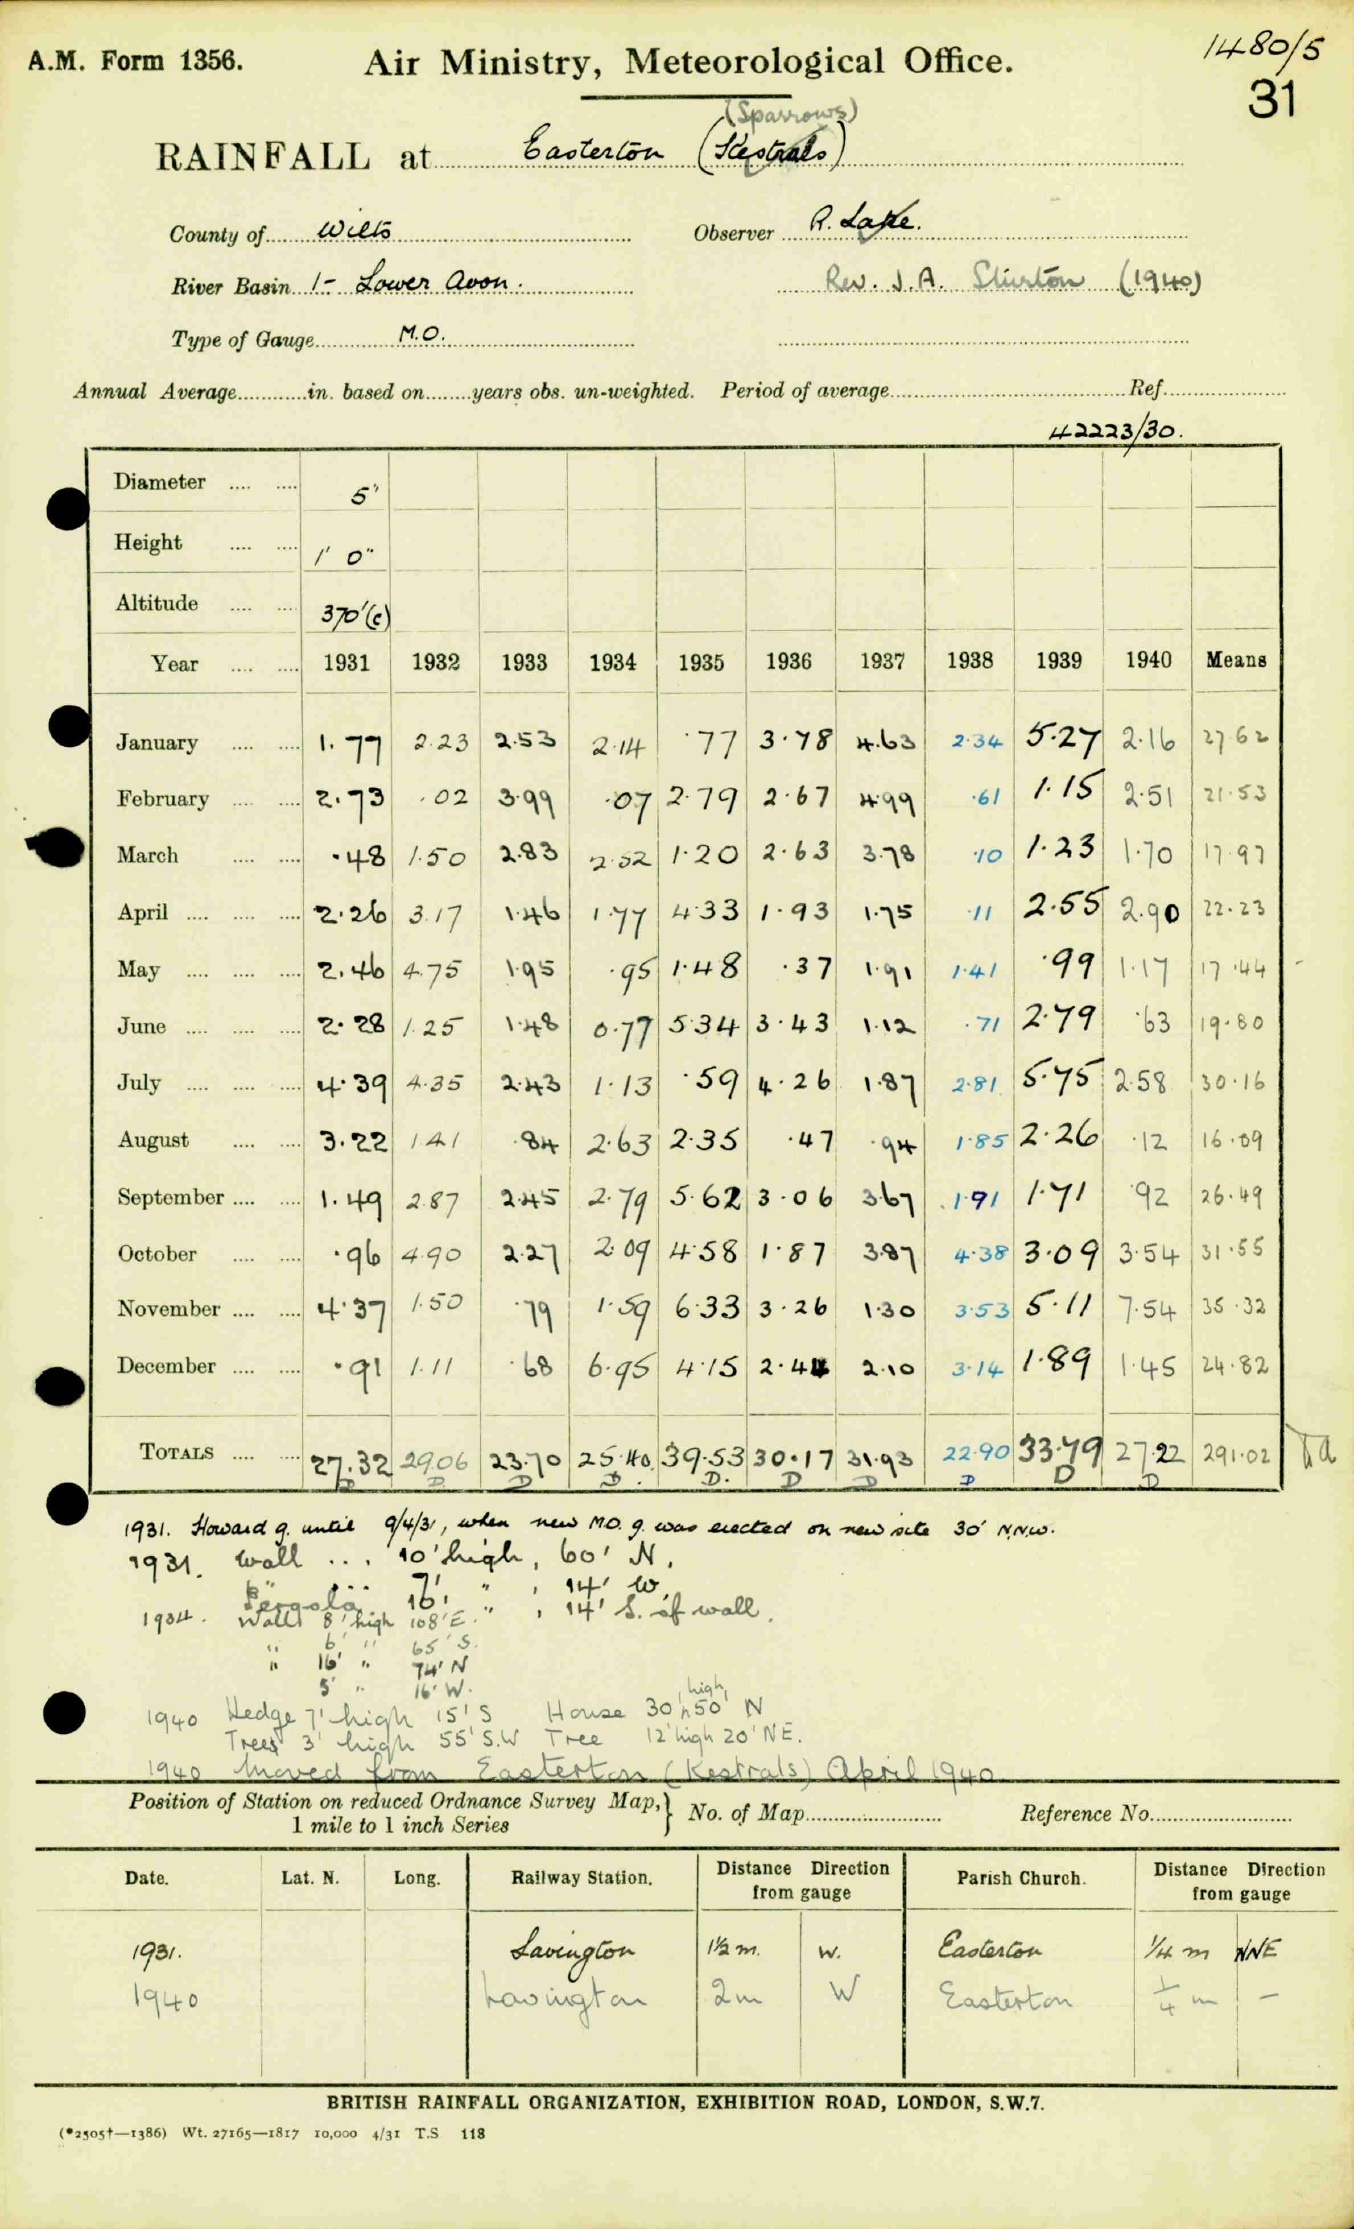 A.M. Form 1356. Air Ministry, Meteorological Office. 1480/5
31
(Sparrows)
RAINFALL at Easterton (Kestrals)
County of Wilts Observer R. Lake.
River Basin 1- Lower Avon. Rev. J.A. Stirton (1940)
Type of Gauge M.O.
Annual Average in. based on years obs. un-weighted. Period of average Ref.
42223/30.
Diameter 5"
Height 1' 0"
Altitude 370'(c)
Year 1931 1932 1933 1934 1935 1936 1937 1938 1939 1940 Means
January 1.77 2.23 2.53 2.14 .77 3.78 4.63 2.34 5.27 2.16 27.62
February 2.73 .02 3.99 .07 2.79 2.67 4.99 .61 1.15 2.51 21.53
March .48 1.50 2.83 2.52 1.20 2.63 3.78 .10 1.23 1.70 17.97
April 2.26 3.17 1.46 1.77 4.33 1.93 1.75 .11 2.55 2.90 22.23
May 2.46 4.75 1.95 .95 1.48 .37 1.91 1.41 .99 1.17 17.44
June 2.28 1.25 1.48 0.77 5.34 3.43 1.12 .71 2.79 .63 19.80
July 4.39 4.35 2.43 1.13 .59 4.26 1.87 2.81 5.75 2.58 30.16
August 3.22 1.41 .84 2.63 2.35 .47 .94 1.85 2.26 .12 16.09
September 1.49 2.87 2.45 2.79 5.62 3.06 3.67 1.91 1.71 .92 26.49
October .96 4.90 2.27 2.09 4.58 1.87 3.87 4.38 3.09 3.54 31.55
November 4.37 1.50 .79 1.59 6.33 3.26 1.30 3.53 5.11 7.54 35.32
December .91 1.11 .68 6.95 4.15 2.44 2.10 3.14 1.89 1.45 24.82
TOTALS 27.32 29.06 23.70 25.40 39.53 30.17 31.93 22.90 33.79 27.22 291.02
D D D D D. D D D D D
1931. Howard g. until 9/4/31, when new M.O. g. was erected on new site 30' N.N.W.
1931. Wall ... 10' high, 60' N.
" ... 7' " , 14' W.
Pergola 16' " , 14' S. of wall.
1934. Wall 8' high 108' E.
" 6' " 65' S.
" 16' " 74' N
5' " 16' W.
1940 Hedge 7' high 15' S House 30' high 50' N
Trees 3' high 55' S.W Tree 12' high 20' NE.
1940 Moved from Easterton (Kestrals) April 1940
Position of Station on reduced Ordnance Survey Map, 1 mile to 1 inch Series } No. of Map Reference No.
Date. Lat. N. Long. Railway Station. Distance Direction from gauge Parish Church. Distance Direction from gauge
1931. Lavington 1½ m. W. Easterton ¼ m NNE
1940 Lavington 2m W Easterton ¼ m -
BRITISH RAINFALL ORGANIZATION, EXHIBITION ROAD, LONDON, S.W.7.
(*2505†—1386) Wt. 27165—1817 10,000 4/31 T.S 118